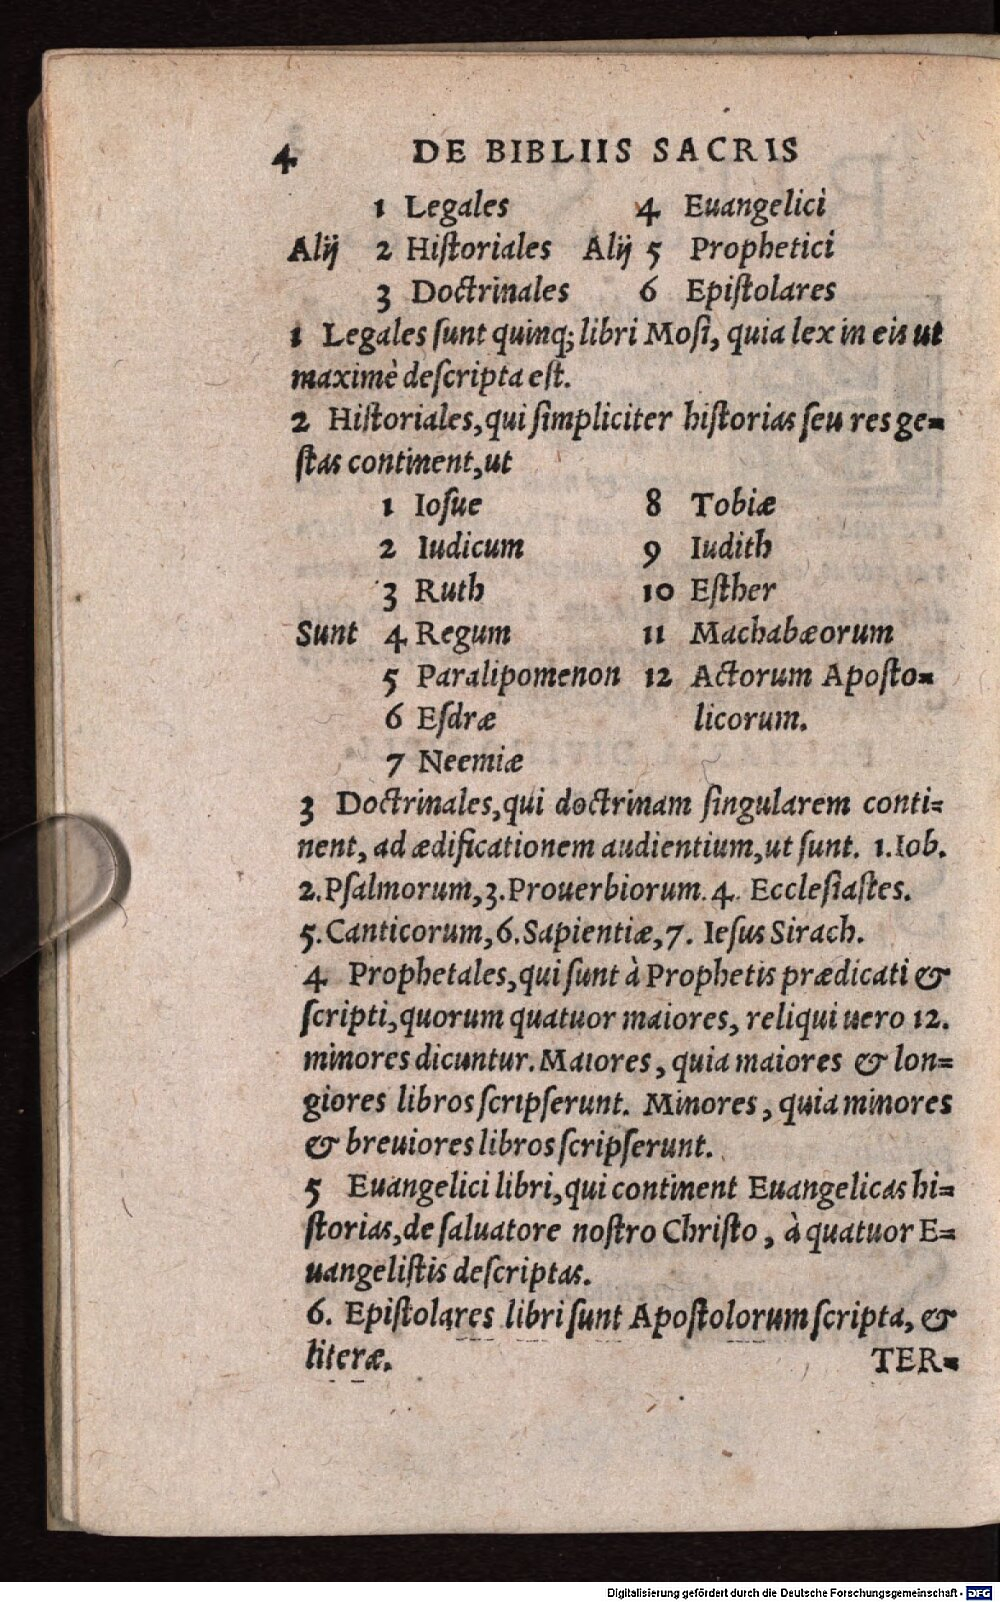 4 DE BIBLIIS SACRIS
1 Legales 4 Euangelici
Alij 2 Hiſtoriales Alij 5 Prophetici
3 Doctrinales 6 Epiſtolares
1 Legales ſunt quinq; libri Moſi, quia lex in eis ut
maximè deſcripta eſt.
2 Hiſtoriales, qui ſimpliciter hiſtorias ſeu res ge=
ſtas continent, ut
1 Ioſue 8 Tobiæ
2 Iudicum 9 Iudith
3 Ruth 10 Eſther
Sunt 4 Regum 11 Machabæorum
5 Paralipomenon 12 Actorum Apoſto=
6 Eſdræ licorum.
7 Neemiæ
3 Doctrinales, qui doctrinam ſingularem conti=
nent, ad ædificationem audientium, ut ſunt. 1. Iob.
2. Pſalmorum, 3. Prouerbiorum. 4. Eccleſiaſtes.
5. Canticorum, 6. Sapientiæ, 7. Ieſus Sirach.
4 Prophetales, qui ſunt à Prophetis prædicati &
ſcripti, quorum quatuor maiores, reliqui uero 12.
minores dicuntur. Maiores, quia maiores & lon=
giores libros ſcripſerunt. Minores, quia minores
& breuiores libros ſcripſerunt.
5 Euangelici libri, qui continent Euangelicas hi=
ſtorias, de ſaluatore noſtro Chriſto, à quatuor E=
uangeliſtis deſcriptas.
6. Epiſtolares libri ſunt Apoſtolorum ſcripta, &
literæ. TER=
Digitalisierung gefördert durch die Deutsche Forschungsgemeinschaft - DFG